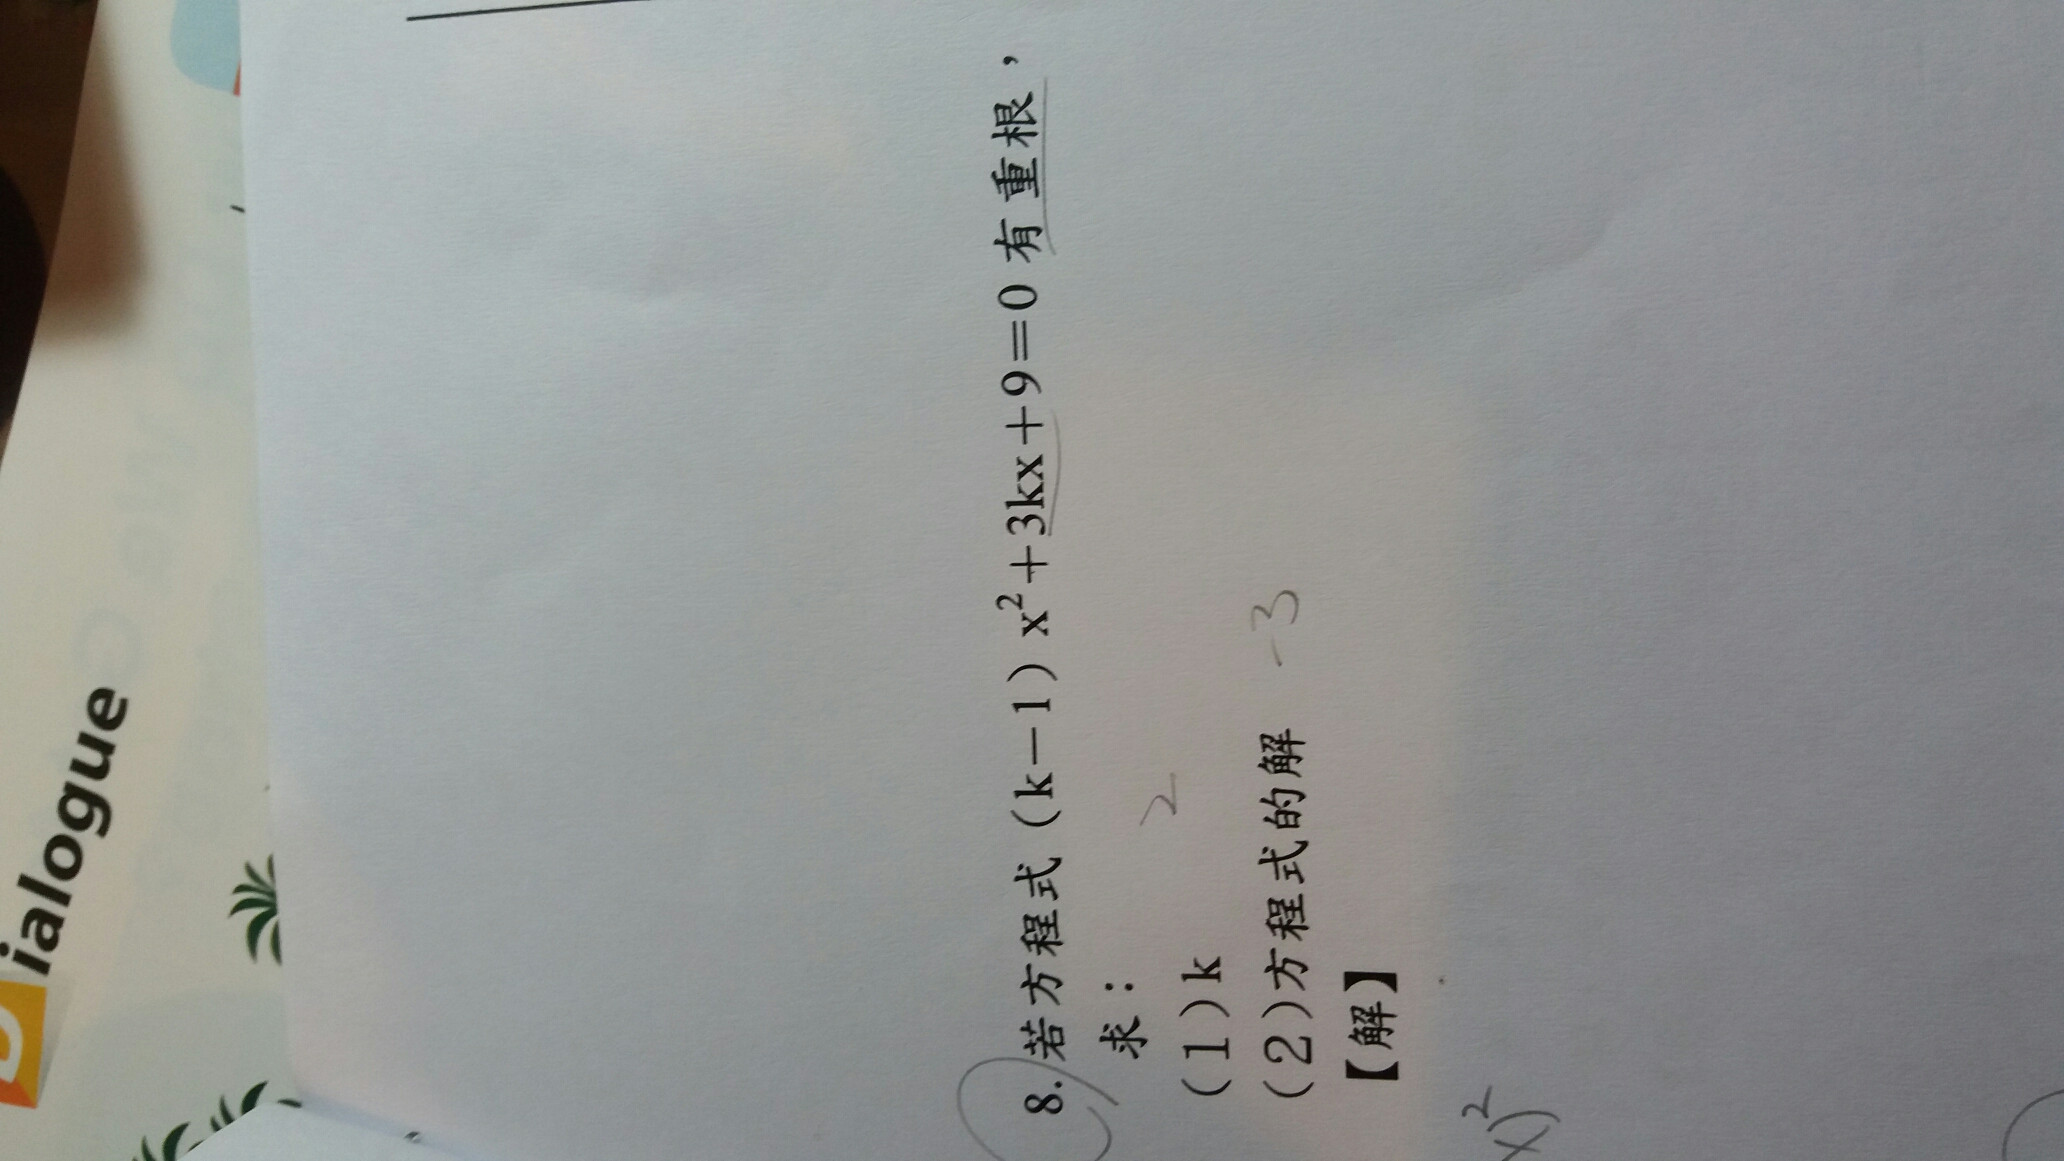 ialogue
8.若方程式(k－1)x²＋3kx＋9＝0 有重根，
求：
2
(1)k
(2)方程式的解 -3
【解】
x)²